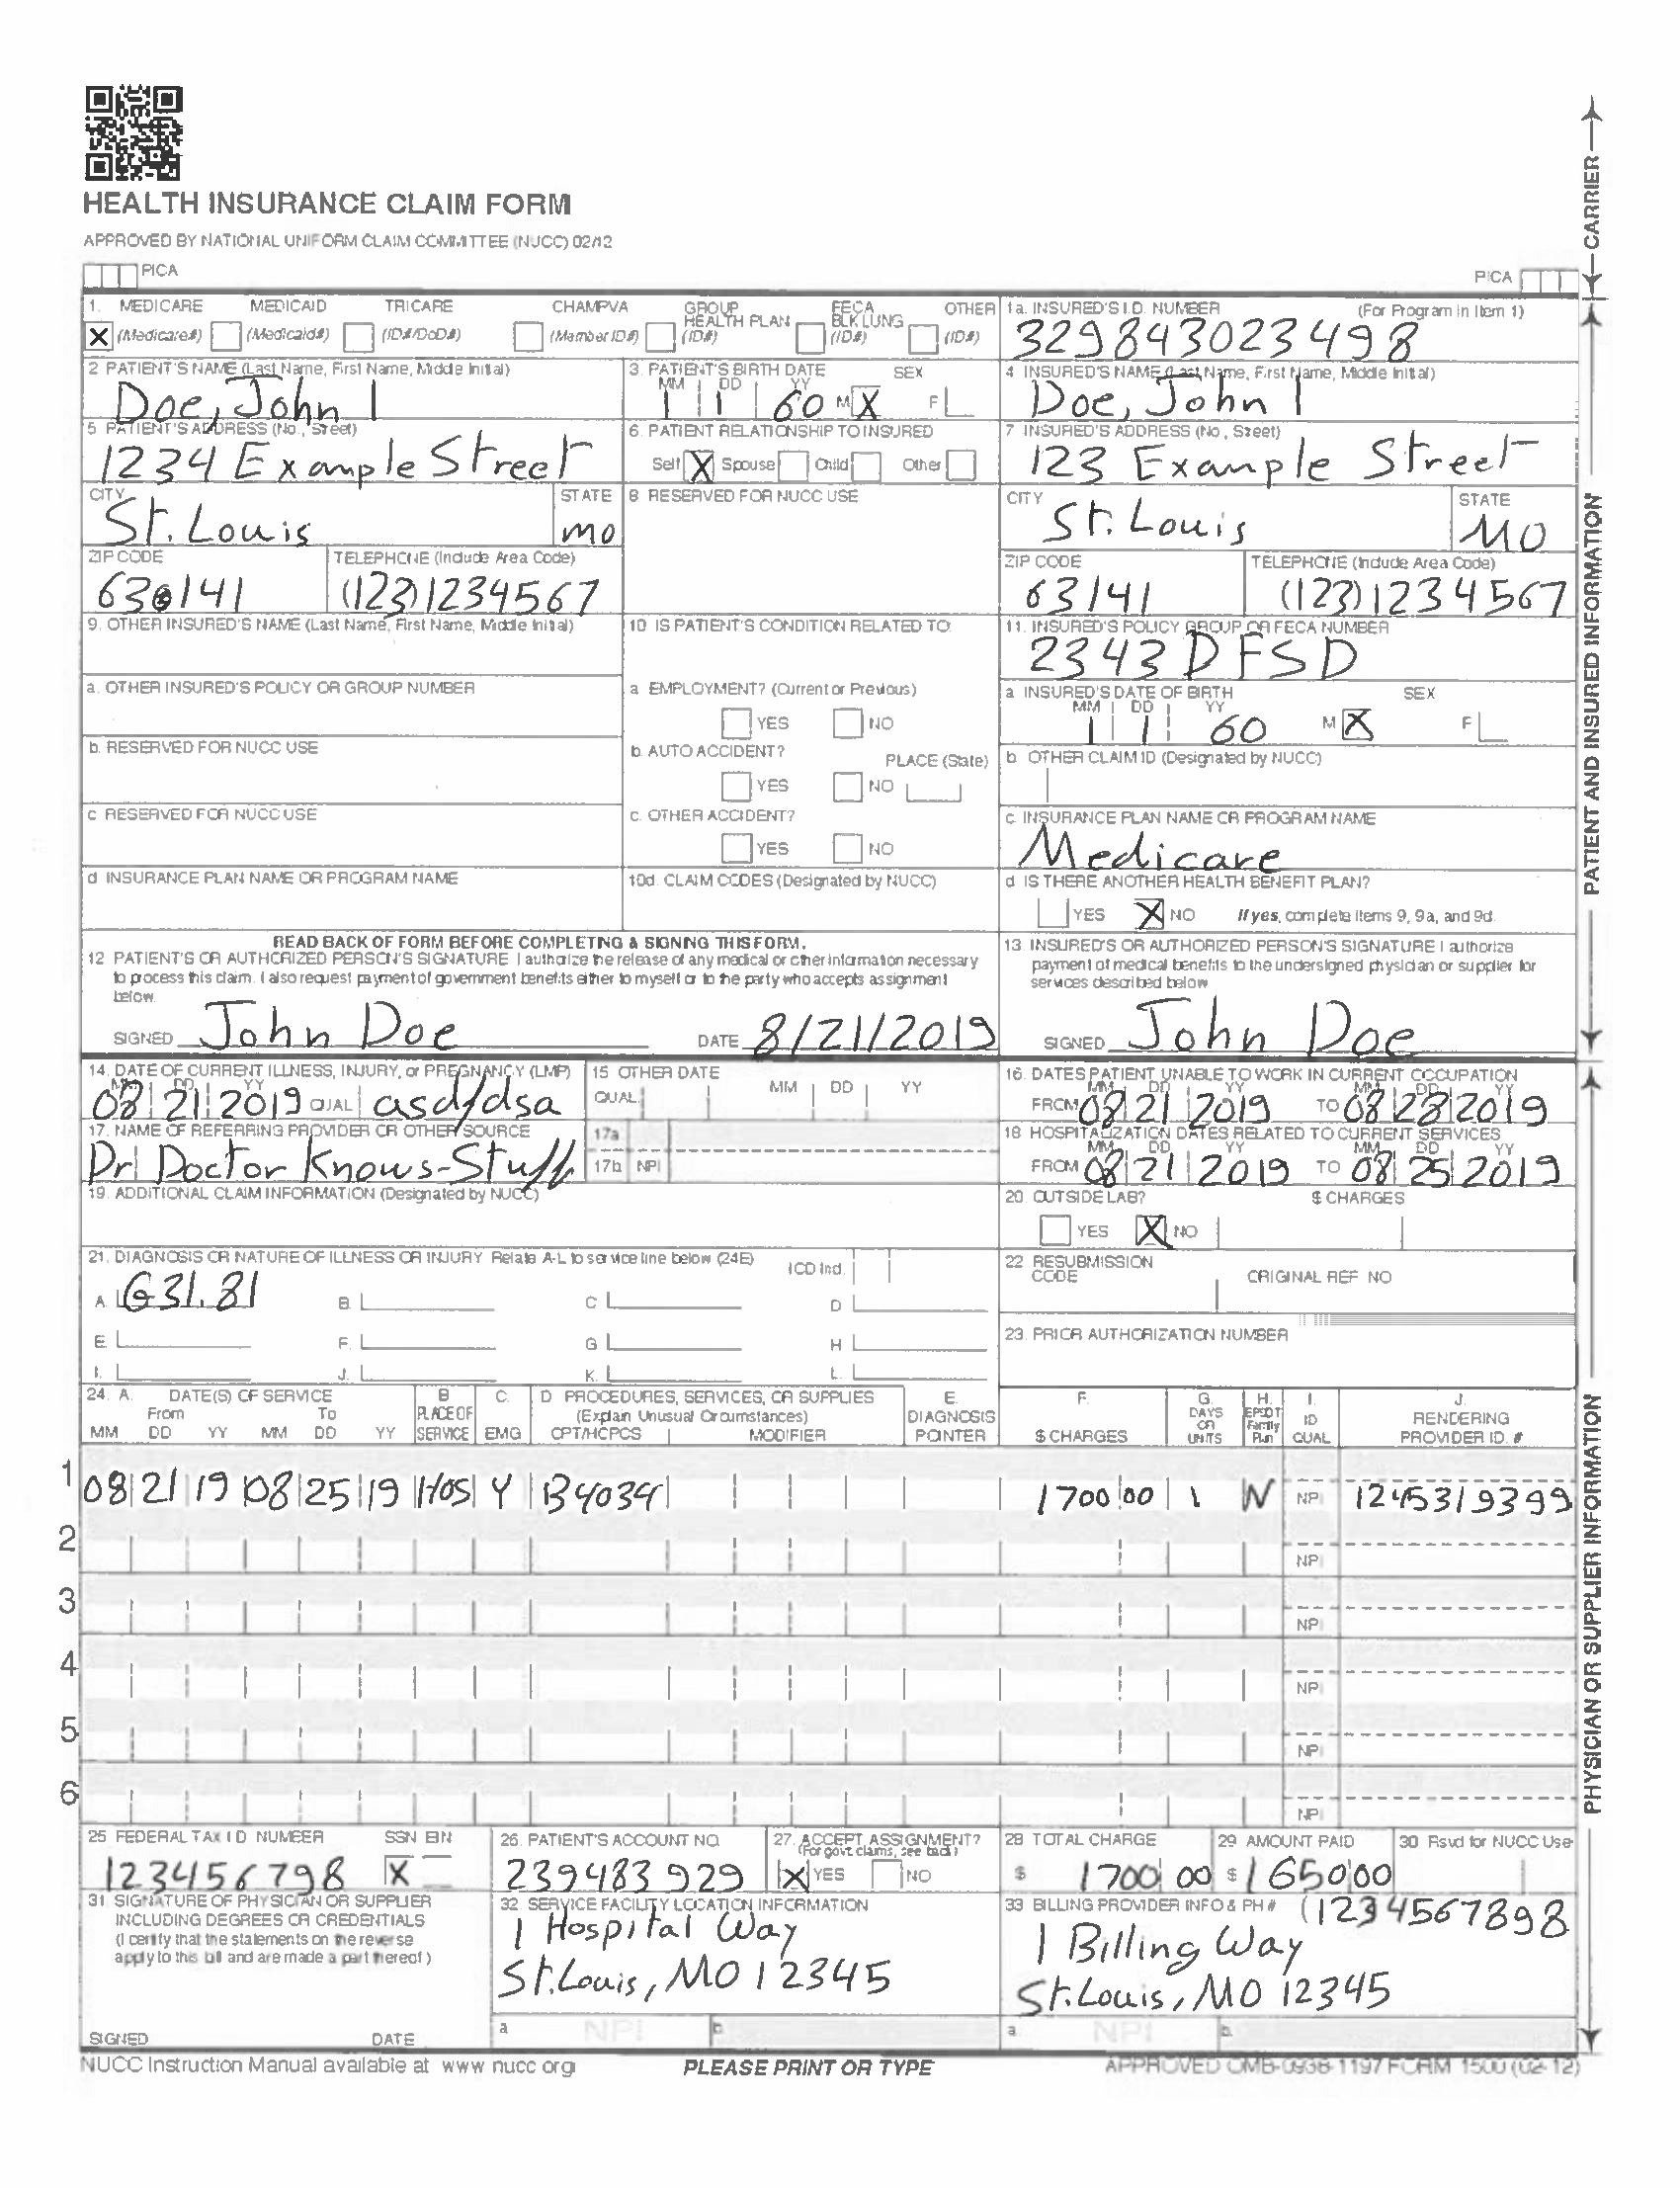 HEALTH INSURANCE CLAIM FORM
APPROVED BY NATIONAL UNIFORM CLAIM COMMITTEE (NUCC) 02/12
PICA
PICA
CARRIER
1. MEDICARE MEDICAID TRICARE CHAMPVA GROUP HEALTH PLAN FECA BLK LUNG OTHER
X (Medicare#) (Medicaid#) (ID#/DoD#) (Member ID#) (ID#) (ID#) (ID#)
1a. INSURED'S I.D. NUMBER (For Program in Item 1)
329843023498
2 PATIENT'S NAME (Last Name, First Name, Middle Initial)
Doe, John I
3. PATIENT'S BIRTH DATE SEX
MM DD YY
1 1 60 M X F
4 INSURED'S NAME (Last Name, First Name, Middle Initial)
Doe, John I
5 PATIENT'S ADDRESS (No., Street)
1234 Example Street
6. PATIENT RELATIONSHIP TO INSURED
Self X Spouse Child Other
7 INSURED'S ADDRESS (No., Street)
123 Example Street
CITY STATE
St. Louis MO
8 RESERVED FOR NUCC USE
CITY STATE
St. Louis MO
ZIP CODE TELEPHONE (Include Area Code)
63 141 (123)1234567
ZIP CODE TELEPHONE (Include Area Code)
63141 (123)1234567
9. OTHER INSURED'S NAME (Last Name, First Name, Middle Initial)
10 IS PATIENT'S CONDITION RELATED TO:
11. INSURED'S POLICY GROUP OR FECA NUMBER
2343DFSD
a. OTHER INSURED'S POLICY OR GROUP NUMBER
a EMPLOYMENT? (Current or Previous)
YES NO
a INSURED'S DATE OF BIRTH SEX
MM DD YY
1 1 60 M X F
b. RESERVED FOR NUCC USE
b. AUTO ACCIDENT? PLACE (State)
YES NO
b OTHER CLAIM ID (Designated by NUCC)
c RESERVED FOR NUCC USE
c. OTHER ACCIDENT?
YES NO
c. INSURANCE PLAN NAME OR PROGRAM NAME
Medicare
d INSURANCE PLAN NAME OR PROGRAM NAME
10d. CLAIM CODES (Designated by NUCC)
d IS THERE ANOTHER HEALTH BENEFIT PLAN?
YES X NO If yes, complete items 9, 9a, and 9d.
READ BACK OF FORM BEFORE COMPLETING & SIGNING THIS FORM.
12 PATIENT'S OR AUTHORIZED PERSON'S SIGNATURE I authorize the release of any medical or other information necessary
to process this claim. I also request payment of government benefits either to myself or to the party who accepts assignment
below.
SIGNED John Doe DATE 8/21/2019
13 INSURED'S OR AUTHORIZED PERSON'S SIGNATURE I authorize
payment of medical benefits to the undersigned physician or supplier for
services described below
SIGNED John Doe
PATIENT AND INSURED INFORMATION
14. DATE OF CURRENT ILLNESS, INJURY, or PREGNANCY (LMP)
MM DD YY
08 21 2019 QUAL asdfdsa
15 OTHER DATE
QUAL. MM DD YY
16. DATES PATIENT UNABLE TO WORK IN CURRENT OCCUPATION
MM DD YY MM DD YY
FROM 08 21 2019 TO 08 28 2019
17. NAME OF REFERRING PROVIDER OR OTHER SOURCE
Dr Doctor Knows-Stuff
17a
17b NPI
18 HOSPITALIZATION DATES RELATED TO CURRENT SERVICES
MM DD YY MM DD YY
FROM 08 21 2019 TO 08 25 2019
19. ADDITIONAL CLAIM INFORMATION (Designated by NUCC)
20 OUTSIDE LAB? $ CHARGES
YES X NO
21. DIAGNOSIS OR NATURE OF ILLNESS OR INJURY Relate A-L to service line below (24E) ICD Ind.
A. G31.81 B. C D
E. F. G H
I. J. K. L.
22 RESUBMISSION
CODE ORIGINAL REF NO
23. PRIOR AUTHORIZATION NUMBER
24. A. DATE(S) OF SERVICE B C. D PROCEDURES, SERVICES, OR SUPPLIES E. F. G. H. I. J.
From To PLACE OF (Explain Unusual Circumstances) DIAGNOSIS DAYS OR EPSDT Family ID RENDERING
MM DD YY MM DD YY SERVICE EMG CPT/HCPCS MODIFIER POINTER $ CHARGES UNITS Plan QUAL PROVIDER ID. #
1 08 21 19 08 25 19 Hos Y B4034 1700 00 1 N NPI 1245319399
2 NPI
3 NPI
4 NPI
5 NPI
6 NPI
25 FEDERAL TAX I D NUMBER SSN EIN
123456798 X
26. PATIENT'S ACCOUNT NO.
239483929
27. ACCEPT ASSIGNMENT?
(For govt claims, see back)
X YES NO
28 TOTAL CHARGE
$ 1700 00
29 AMOUNT PAID
$ 1650 00
30 Rsvd for NUCC Use
31 SIGNATURE OF PHYSICIAN OR SUPPLIER
INCLUDING DEGREES OR CREDENTIALS
(I certify that the statements on the reverse
apply to this bill and are made a part thereof.)
SIGNED DATE
32. SERVICE FACILITY LOCATION INFORMATION
1 Hospital Way
St. Louis, MO 12345
a NPI b
33 BILLING PROVIDER INFO & PH # (1234567898
1 Billing Way
St. Louis, MO 12345
a. NPI b.
PHYSICIAN OR SUPPLIER INFORMATION
NUCC Instruction Manual available at www nucc org
PLEASE PRINT OR TYPE
APPROVED OMB-0938-1197 FORM 1500 (02-12)